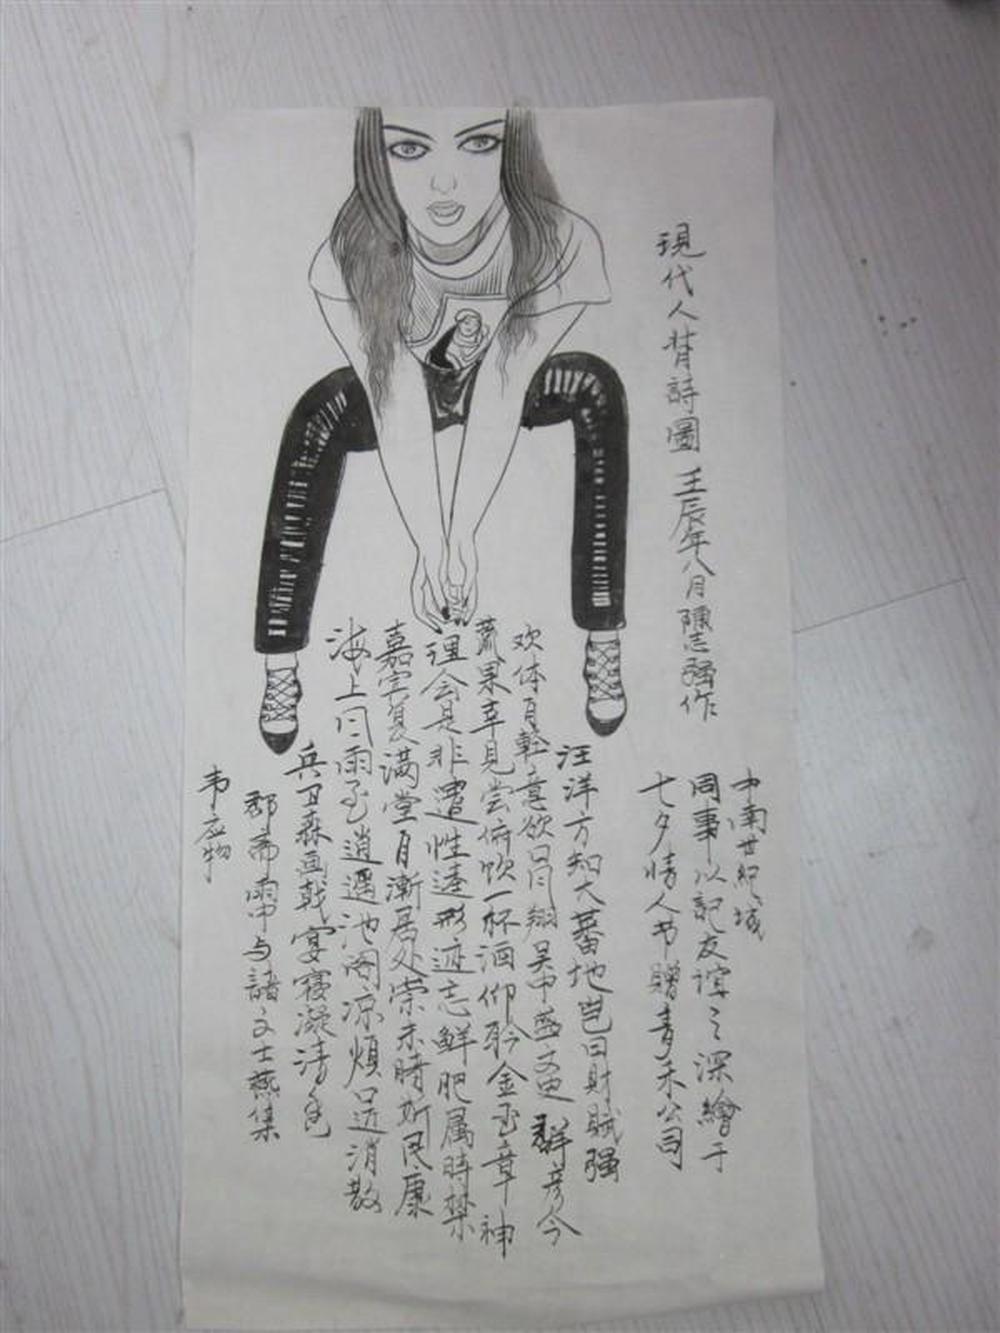 現代人背詩圖 壬辰年八月陳志强作
韦应物
郡斋雨中与諸文士燕集
兵卫森画戟宴寝凝清香
海上风雨至逍遥池阁凉煩近消散
嘉宾复满堂自渐居处崇未睹斯民康
理会是非遣性達形迹忘鲜肥属時禁
蔬果幸见尝俯饮一杯酒仰聆金玉章神
欢体自輕意欲风翔吴中盛文史群彦今
汪洋方知大蕃地岂曰財賦强
七夕情人节贈青禾公司
同事以記友谊之深繪于
中南世紀城